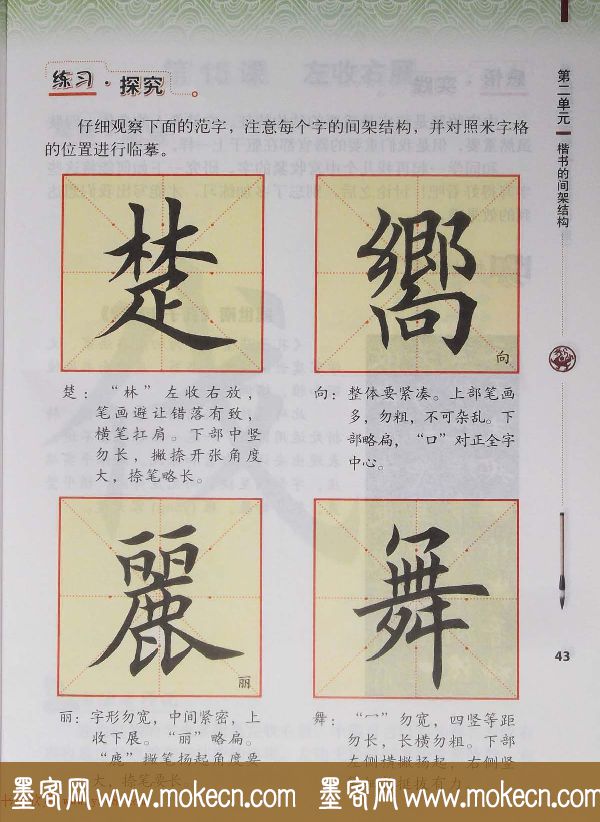 练习·探究
仔细观察下面的范字，注意每个字的间架结构，并对照米字格
的位置进行临摹。
第二单元
楷书的间架结构
楚
嚮
向
楚：“林”左收右放，
笔画避让错落有致，
横笔扛肩。下部中竖
勿长，撇捺开张角度
大，捺笔略长。
向：整体要紧凑。上部笔画
多，勿粗，不可杂乱。下
部略扁，“口”对正全字
中心。
麗
丽
舞
43
丽：字形勿宽，中间紧密，上
收下展。“丽”略扁。
“鹿”撇笔扬起角度要
大，捺笔要长。
勿宽，四竖等距
勿长，长横勿粗。下部
左侧横撇扬起，右侧竖
挺拔有力
墨客网 www.mokecn.com 墨客网 www.mokecn.com